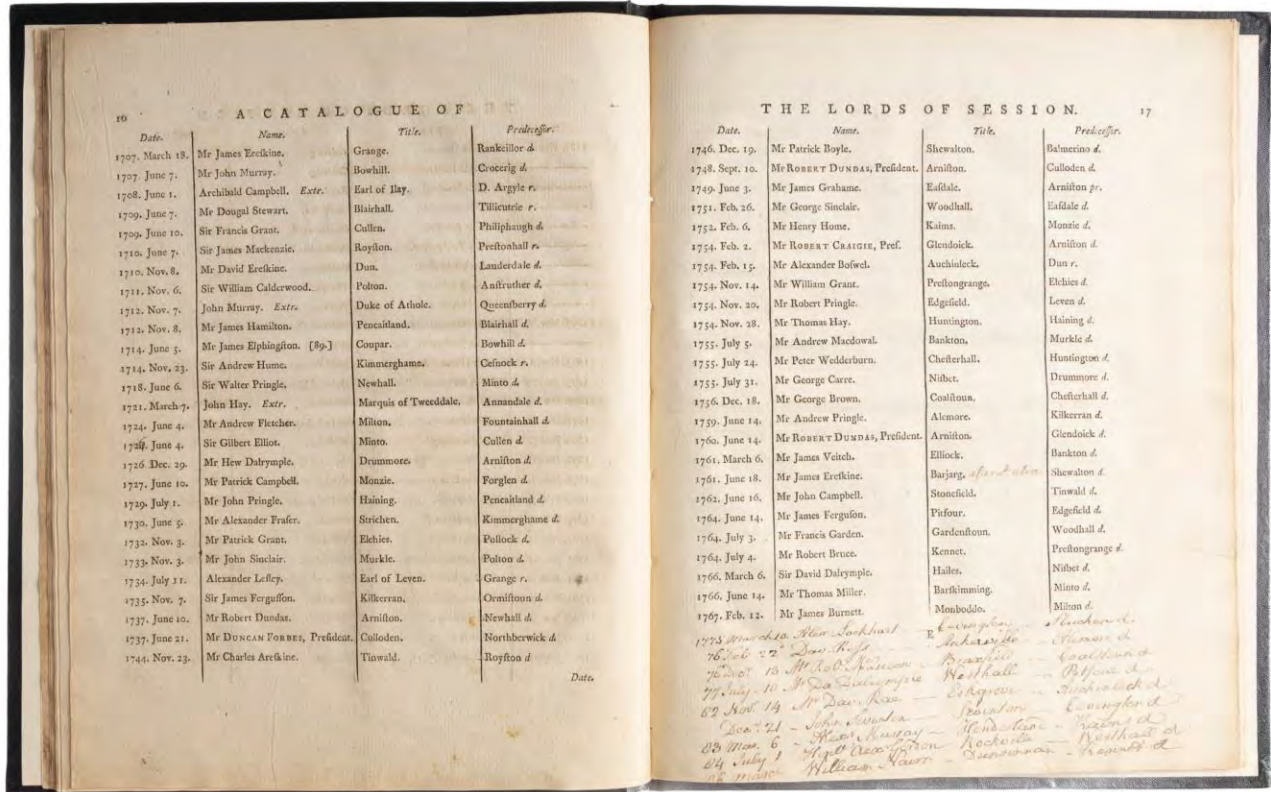 16 A CATALOGUE OF
Date. Name. Title. Predeceſſor.
1707. March 18. Mr James Ereſkine. Grange. Rankeillor d.
1707. June 7. Mr John Murray. Bowhill. Crocerig d.
1708. June 1. Archibald Campbell. Extr. Earl of Ilay. D. Argyle r.
1709. June 7. Mr Dougal Stewart. Blairhall. Tillicutrie r.
1709. June 10. Sir Francis Grant. Cullen. Philiphaugh d.
1710. June 7. Sir James Mackenzie. Royſton. Preſtonhall r.
1710. Nov. 8. Mr David Ereſkine. Dun. Lauderdale d.
1711. Nov. 6. Sir William Calderwood. Polton. Anſtruther d.
1712. Nov. 7. John Murray. Extr. Duke of Athole. Queenſberry d.
1712. Nov. 8. Mr James Hamilton. Pencaitland. Blairhall d.
1714. June 5. Mr James Elphingſton. [89.] Coupar. Bowhill d.
1714. Nov. 23. Sir Andrew Hume. Kimmerghame. Ceſnock r.
1718. June 6. Sir Walter Pringle. Newhall. Minto d.
1721. March 7. John Hay. Extr. Marquis of Tweeddale. Annandale d.
1724. June 4. Mr Andrew Fletcher. Milton. Fountainhall d.
June 4. Sir Gilbert Elliot. Minto. Cullen d.
1726 Dec. 29. Mr Hew Dalrymple. Drummore. Arniſton d.
1727. June 10. Mr Patrick Campbell. Monzie. Forglen d.
1729. July 1. Mr John Pringle. Haining. Pencaitland d.
1730. June 5. Mr Alexander Fraſer. Strichen. Kimmerghame d.
1732. Nov. 3. Mr Patrick Grant. Elchies. Pollock d.
1733. Nov. 3. Mr John Sinclair. Murkle. Polton d.
1734. July 11. Alexander Leſley. Earl of Leven. Grange r.
1735. Nov. 7. Sir James Ferguſſon. Kilkerran. Ormiſtoun d.
1737. June 10. Mr Robert Dundas. Arniſton. Newhall d.
1737. June 21. Mr DUNCAN FORBES, Preſident. Culloden. Northberwick d.
1744. Nov. 23. Mr Charles Areſkine. Tinwald. Royſton d
Date.
THE LORDS OF SESSION. 17
Date. Name. Title. Predeceſſor.
1746. Dec. 19. Mr Patrick Boyle. Shewalton. Balmerino d.
1748. Sept. 10. Mr ROBERT DUNDAS, Preſident. Arniſton. Culloden d.
1749. June 3. Mr James Grahame. Eaſdale. Arniſton pr.
1751. Feb. 26. Mr George Sinclair. Woodhall. Eaſdale d.
1752. Feb. 6. Mr Henry Home. Kaims. Monzie d.
1754. Feb. 2. Mr ROBERT CRAIGIE, Preſ. Glendoick. Arniſton d.
1754. Feb. 15. Mr Alexander Boſwel. Auchinleck. Dun r.
1754. Nov. 14. Mr William Grant. Preſtongrange. Elchies d.
1754. Nov. 20. Mr Robert Pringle. Edgefield. Leven d.
1754. Nov. 28. Mr Thomas Hay. Huntington. Haining d.
1755. July 5. Mr Andrew Macdowal. Bankton. Murkle d.
1755. July 24. Mr Peter Wedderburn. Cheſterhall. Huntington d.
1755. July 31. Mr George Carre. Niſbet. Drummore d.
1756. Dec. 18. Mr George Brown. Coalſtoun. Cheſterhall d.
1759. June 14. Mr Andrew Pringle. Alemore. Kilkerran d.
1760. June 14. Mr ROBERT DUNDAS, Preſident. Arniſton. Glendoick d.
1761. March 6. Mr James Veitch. Elliock. Bankton d.
1761. June 18. Mr James Ereſkine. Barjarg. Shewalton d.
1762. June 16. Mr John Campbell. Stonefield. Tinwald d.
1764. June 14. Mr James Ferguſon. Pitfour. Edgefield d.
1764. July 3. Mr Francis Garden. Gardenſtoun. Woodhall d.
1764. July 4. Mr Robert Bruce. Kennet. Preſtongrange d.
1766. March 6. Sir David Dalrymple. Hailes. Niſbet d.
1766. June 14. Mr Thomas Miller. Barſkimming. Minto d.
1767. Feb. 12. Mr James Burnett. Monboddo. Milton d.
E
1775 March 10 Alexr Lockhart Covington Strichen d.
76 Feb 22 Dav. Roſs Ankerville Alemore d
13 Mr Braxfield Coalſtoun d
77 July 10 Mr Da Dalrymple Weſthall Pitfour d
82 Nov. 14 Mr Dav. Rae Eſkgrove Auchinleck d
Decr 21 John Swinton Swinton Covington d
83 Mar. 6 Alexr Murray Henderland Kaims d
84 July 1 Gordon Rockville Weſthall d
86 March William Nairn Dunsinnan Kennet d